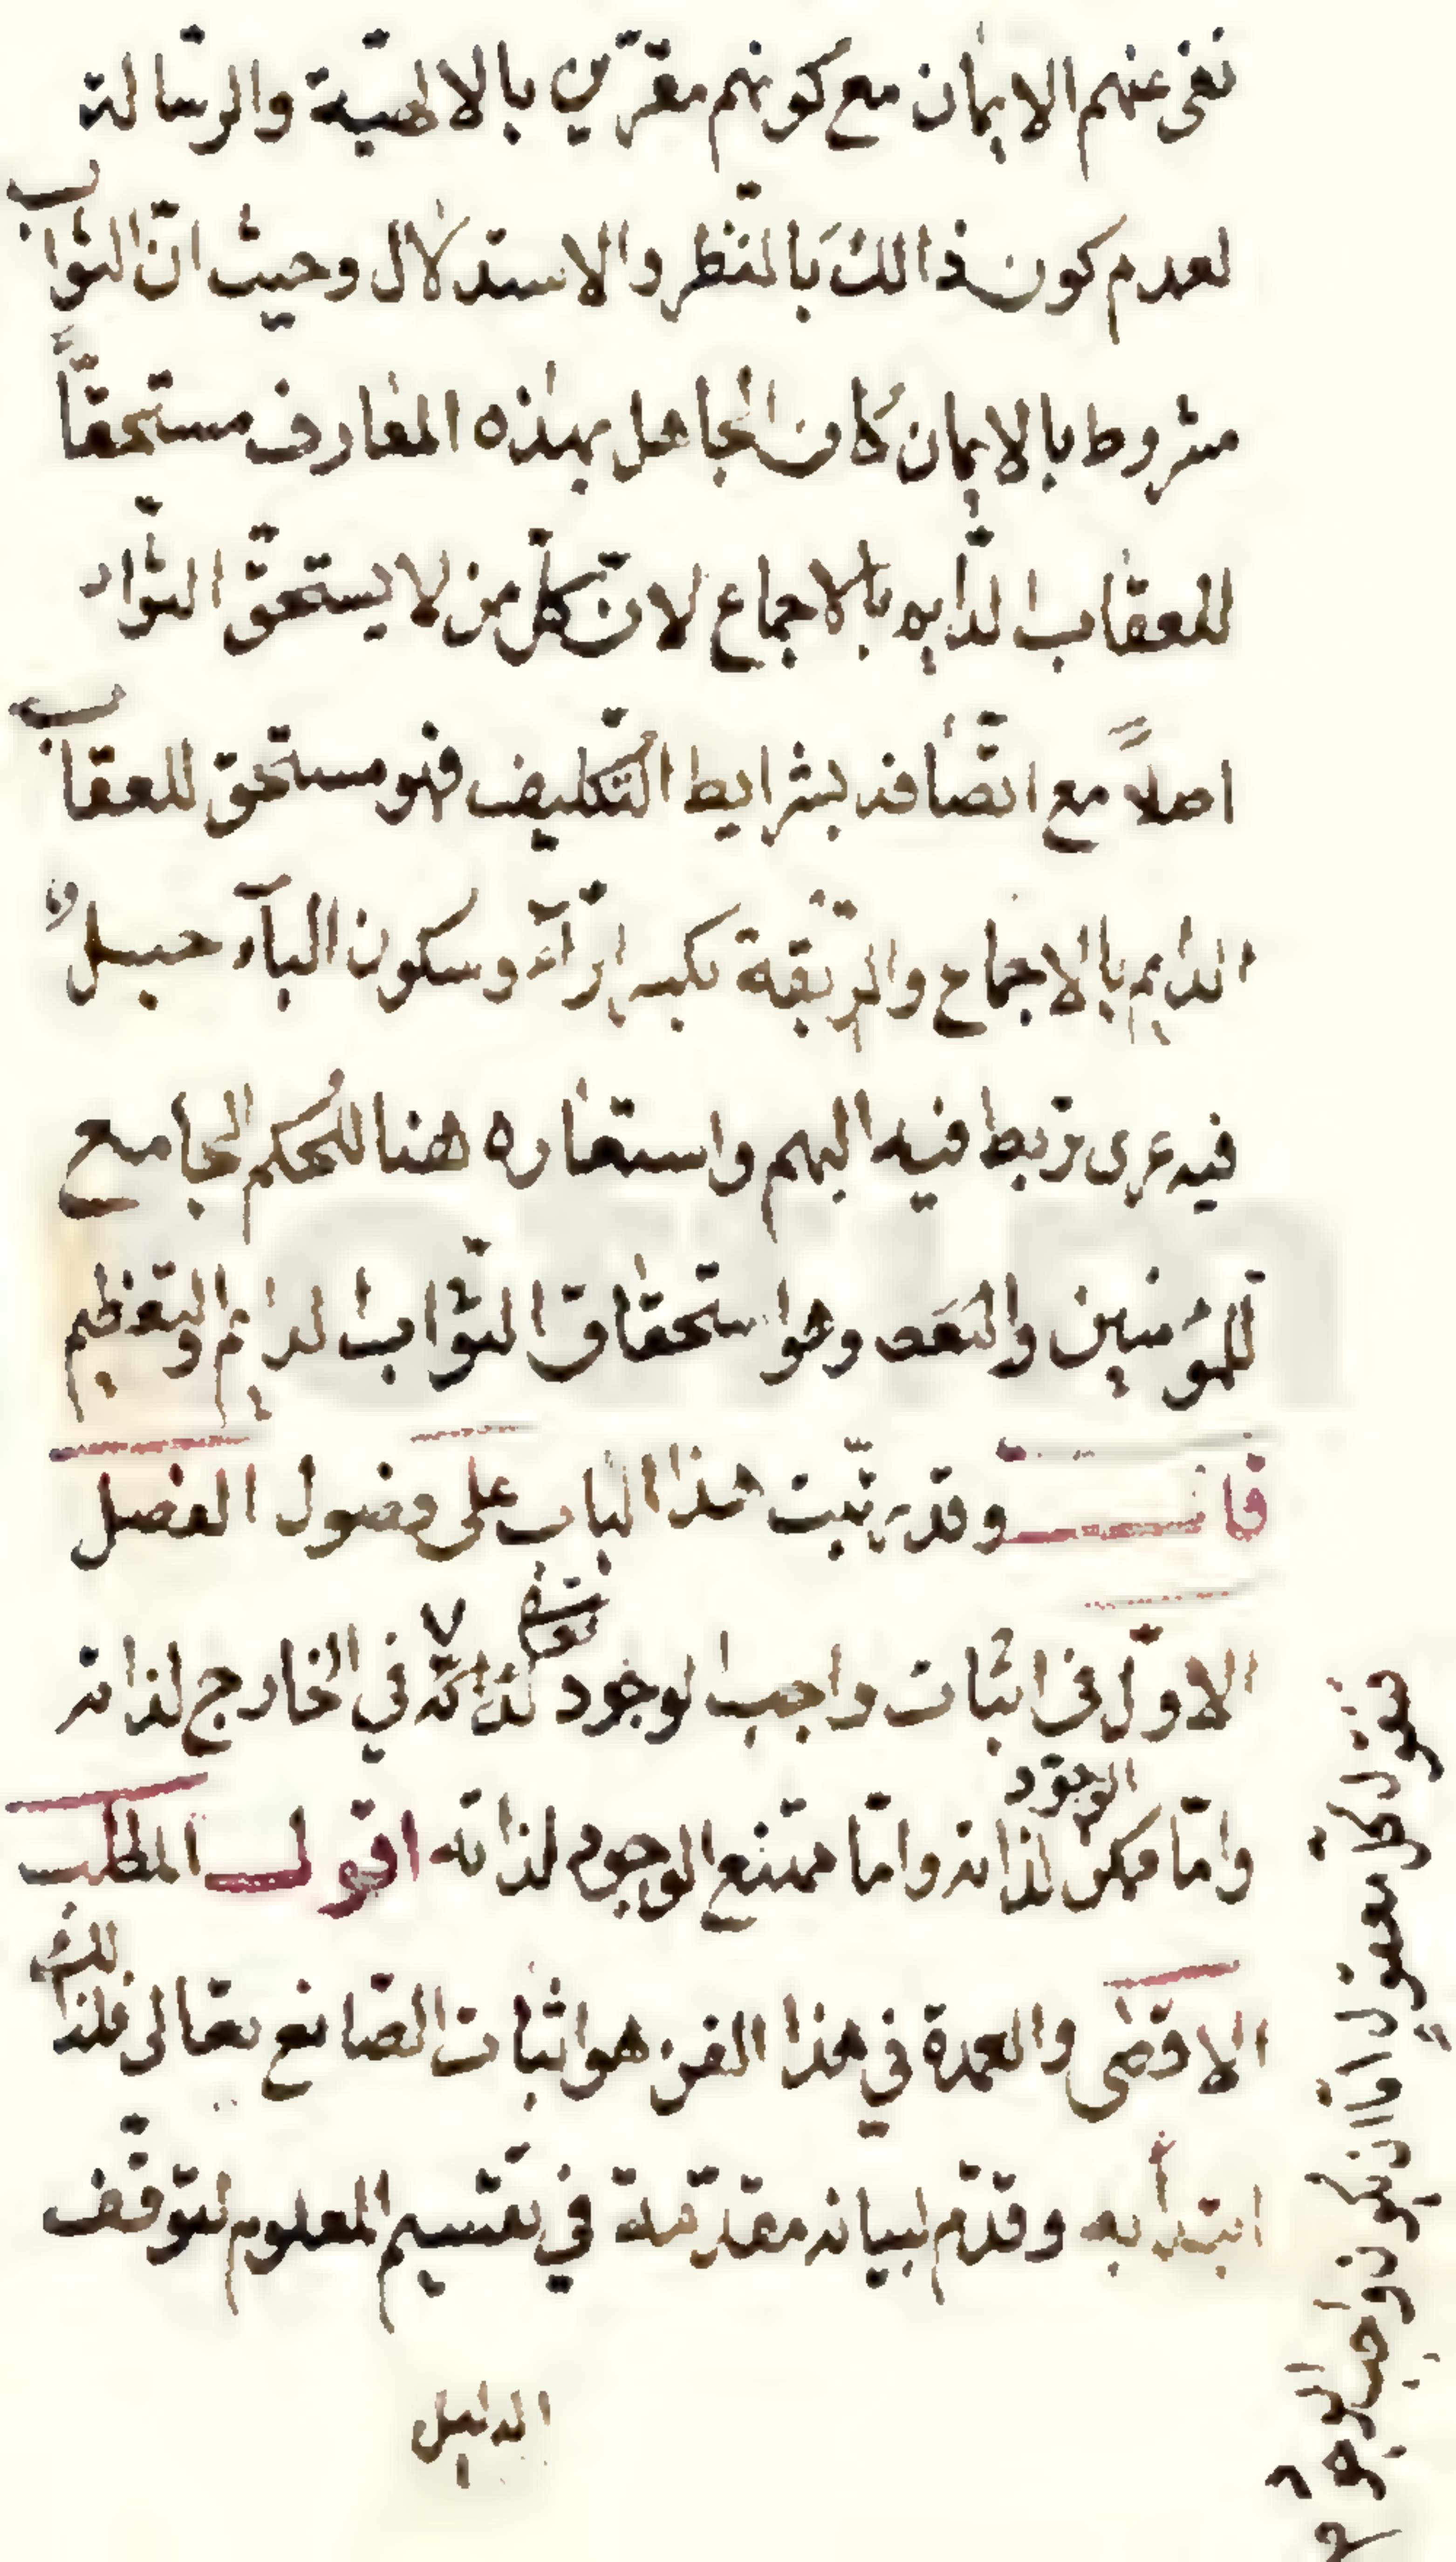 نفى عنهم الايمان مع كونهم مقرّين بالالهيّة والرّسالة
لعدم كون ذالك بالنّظر والاستدلال وحيث انّ الثواب
مشروط بالايمان كان الجاهل بهذه المعارف مستحقّاً
للعقاب الدّايم بالاجماع لانّ كلّ من لا يستحقّ الثّواب
اصلاً مع اتّصافه بشرايط التّكليف فهو مستحق للعقاب
الدايم بالاجماع والرّبقة بكسر الرّآء وسكون البآء حبل
فيه عرى تربط فيه البهم واستعاره هنا للحُكم الجامع
للمؤمنين وهو استحقاق الثّواب الدايم والتعظيم
قال وقد رتّبت هذا الباب على فصول الفصل
الاوّل فى اثبات واجب الوجود لذاته تعالى في الخارج لذاته
وامّا ممكن الوجود لذاته وامّا ممتنع الوجود لذاته اقول المطلب
الاقصى والعمدة في هذا الفن هو اثبات الصّانع تعالى فلذالك
ابتدأ به وقدّم لبيانه مقدّمة في تقسيم المعلوم لتوقّف
الدليل
فنقول كلّ معقول امّا ان يكون واجب الوجود